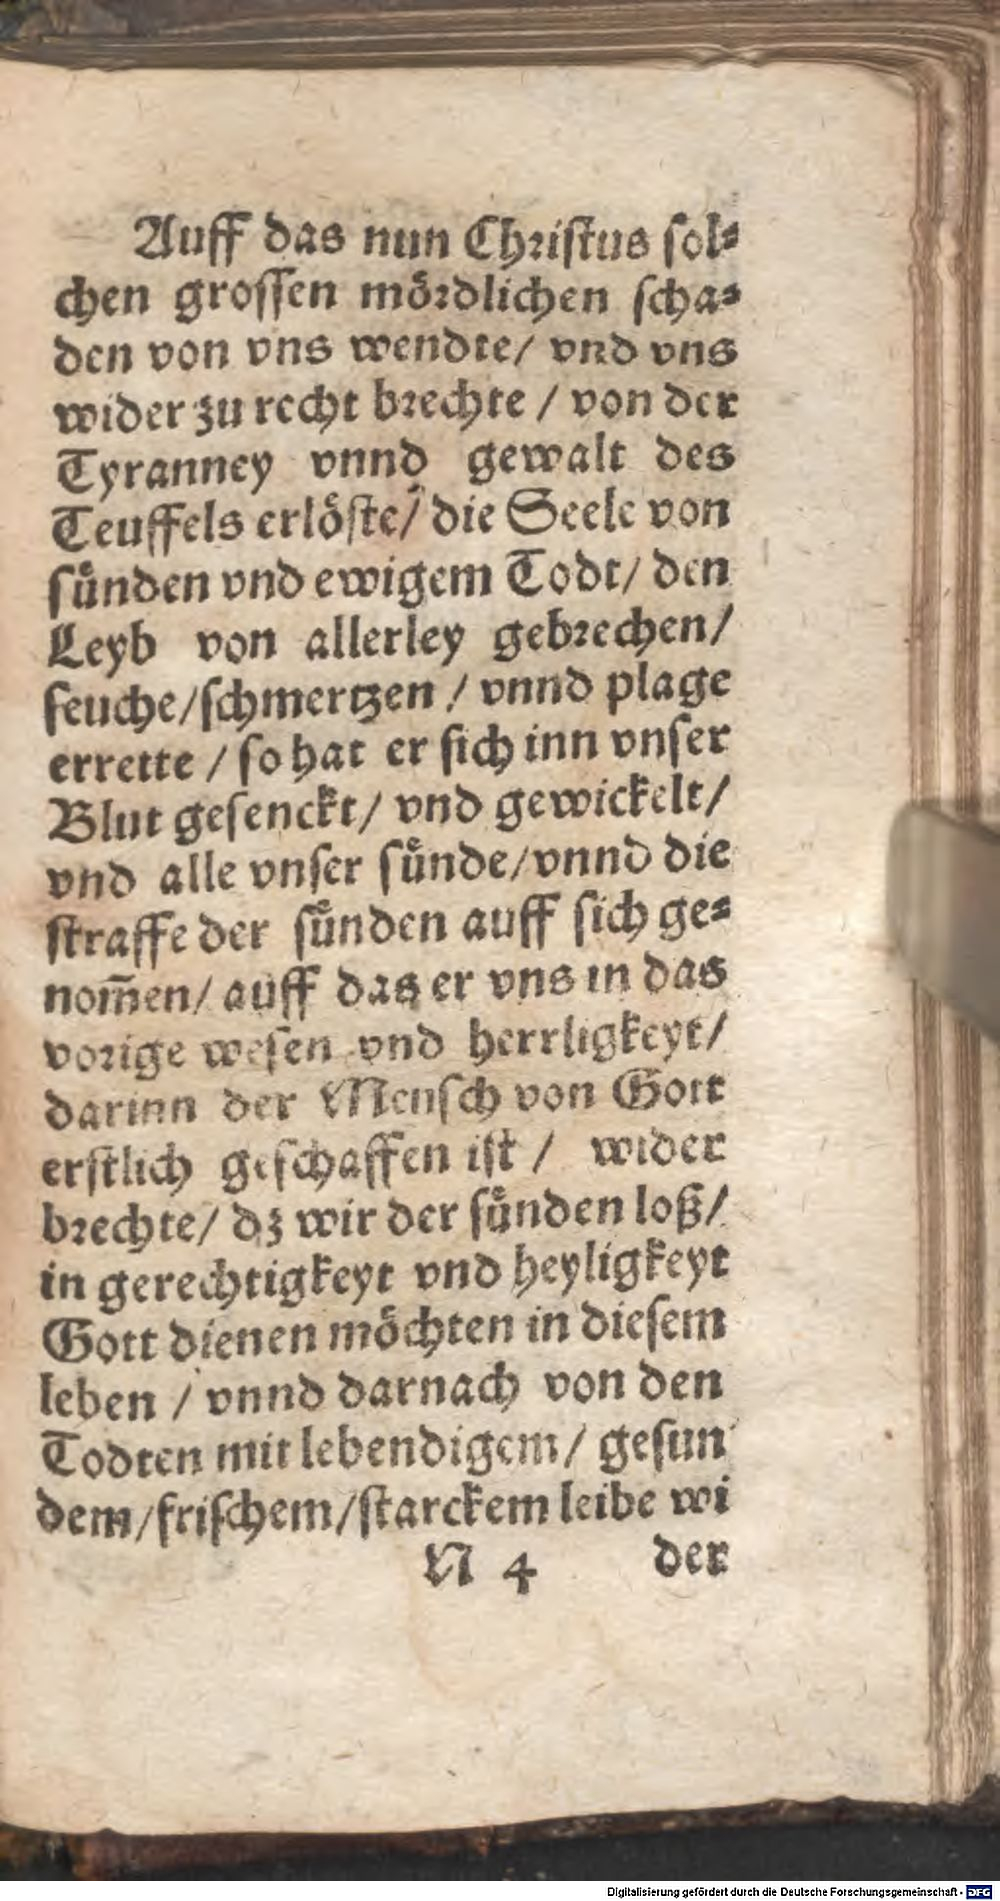 Auff das nun Christus sol⸗
chen grossen mördlichen scha⸗
den von vns wendte/ vnd vns
wider zu recht brechte / von der
Tyranney vnnd gewalt des
Teuffels erlöste/ die Seele von
sünden vnd ewigem Todt/ den
Leyb von allerley gebrechen/
seuche/schmertzen / vnnd plage
errette / so hat er sich inn vnser
Blut gesenckt/ vnd gewickelt/
vnd alle vnser sünde/vnnd die
straffe der sünden auff sich ge⸗
nom̄en/ auff das er vns in das
vorige wesen vnd herrligkeyt/
darinn der Mensch von Gott
erstlich geschaffen ist / wider
brechte/ dz wir der sünden loß/
in gerechtigkeyt vnd heyligkeyt
Gott dienen möchten in diesem
leben / vnnd darnach von den
Todten mit lebendigem/ gesun
dem/frischem/starckem leibe wi
N 4 der
Digitalisierung gefördert durch die Deutsche Forschungsgemeinschaft - DFG